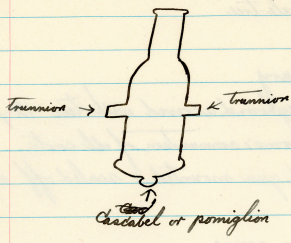 trunnion
trunnion
Cascabel or pomiglion